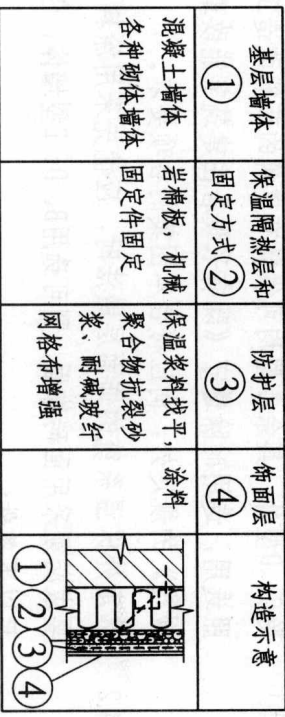 基层墙体
①
保温隔热层和
固定方式②
防护层
③
饰面层
④
构造示意
混凝土墙体
各种砌体墙体
岩棉板，机械
固定件固定
保温浆料找平，
聚合物抗裂砂
浆、耐碱玻纤
网格布增强
涂料
①②③④